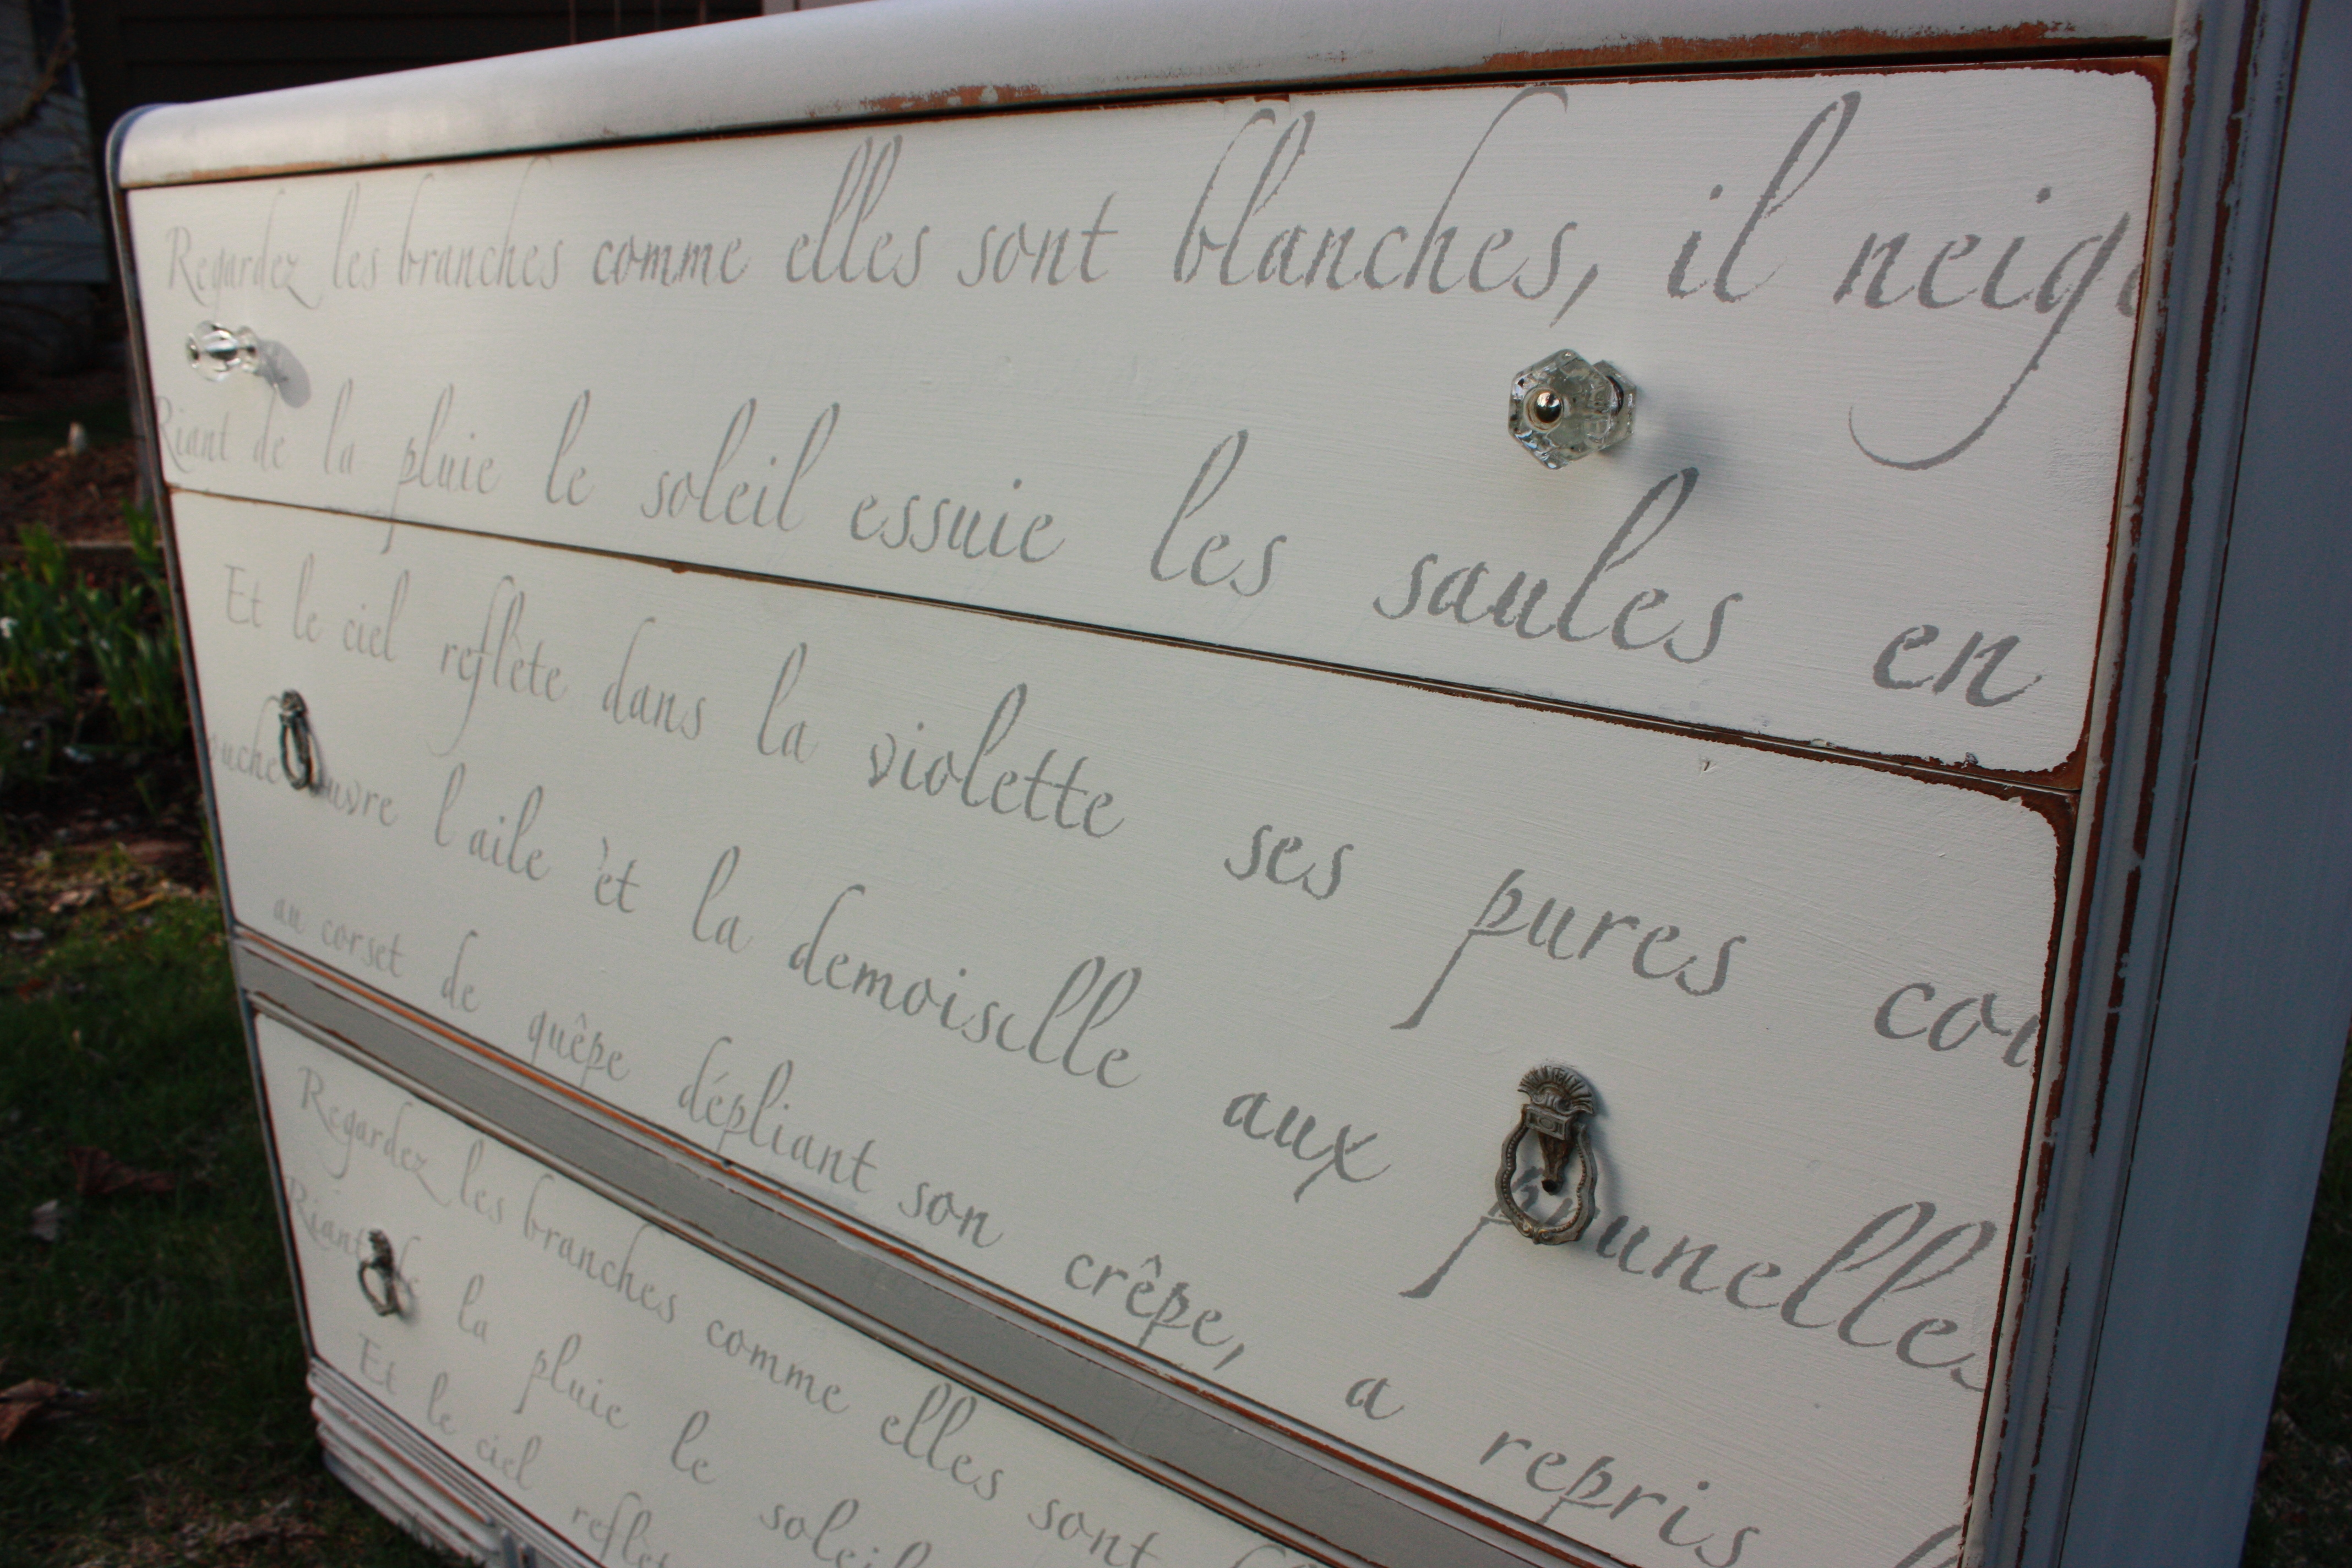 Regardez les branches comme elles sont blanches, il neig
Riant de la pluie le soleil essuie les saules en
Et le ciel reflète dans la violette ses pures co
l'aile èt la demoiselle aux prunelles
au corset de quêpe dépliant son crêpe, a repris
Regardez les branches comme elles sont
Riant de la pluie le soleil
Et le ciel reflèt